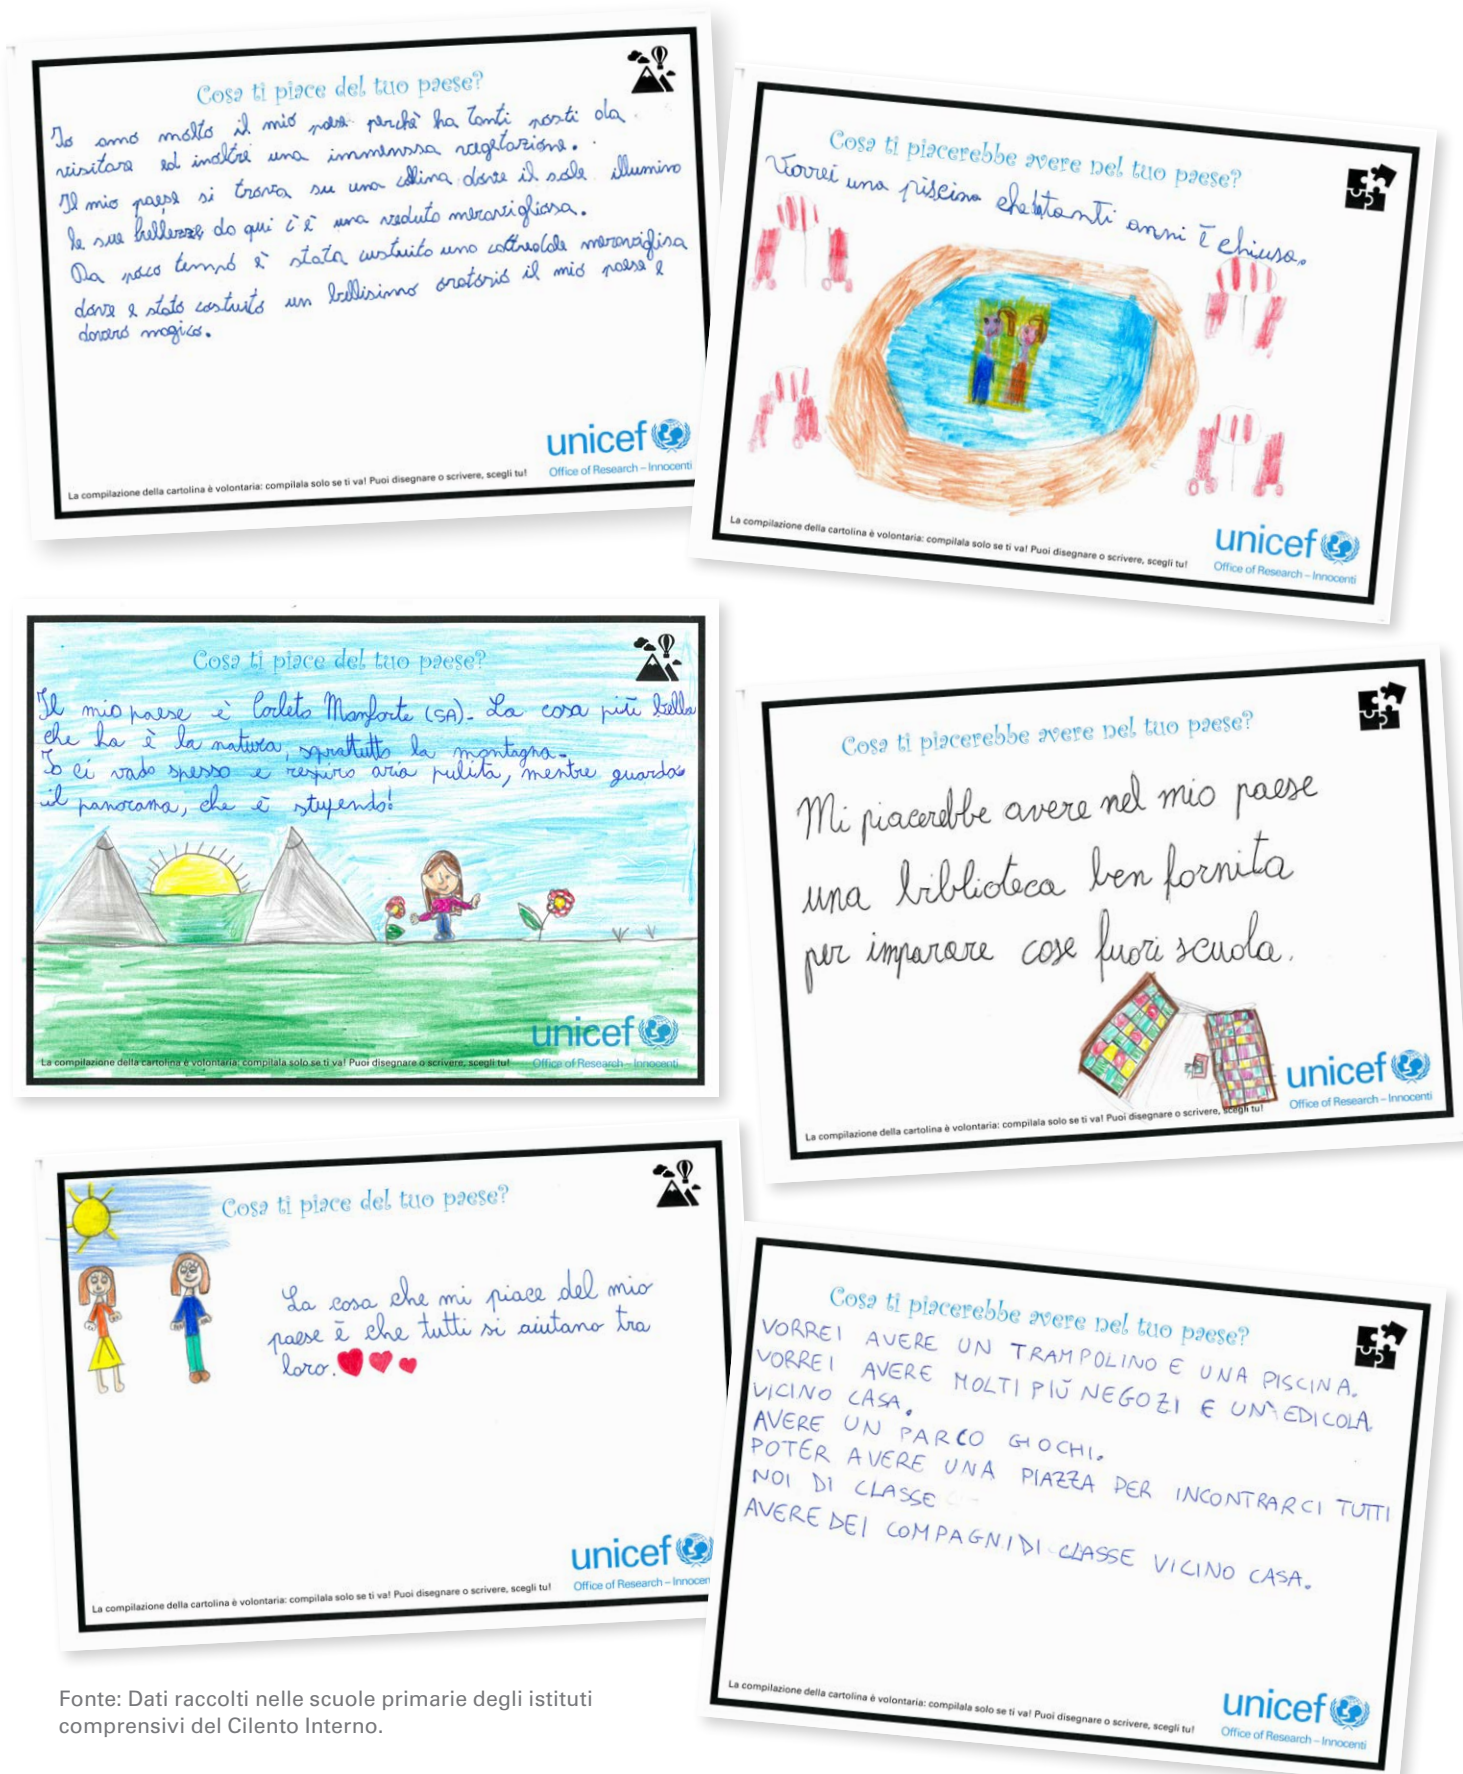 Cosa ti piace del tuo paese?
Io amo molto il mio paese perchè ha tanti posti da
visitare ed inoltre una immenssa vegetazione.
Il mio paese si trova su una collina dove il sole illumino
le sue bellezze, do qui c'è una veduto meravigliosa.
Da poco tempo è stata custruito uno cattredale meravigliosa
dove e stato costruito un bellisimo oratorio il mio paese è
davero magico.
unicef
Office of Research – Innocenti
La compilazione della cartolina è volontaria: compilala solo se ti va! Puoi disegnare o scrivere, scegli tu!
Cosa ti piacerebbe avere nel tuo paese?
Vorrei una piscina che tanti anni è chiusa.
La compilazione della cartolina è volontaria: compilala solo se ti va! Puoi disegnare o scrivere, scegli tu!
unicef
Office of Research – Innocenti
Cosa ti piace del tuo paese?
Il mio paese è Corleto Monforte (SA). La cosa più bella
che ha è la natura, sprattutto la montagna.
Io ci vado spesso e respiro aria pulita, mentre guardo
il panorama, che è stupendo!
unicef
La compilazione della cartolina è volontaria: compilala solo se ti va! Puoi disegnare o scrivere, scegli tu!
Office of Research – Innocenti
Cosa ti piacerebbe avere nel tuo paese?
Mi piacerebbe avere nel mio paese
una biblioteca ben fornita
per imparare cose fuori scuola.
unicef
Office of Research – Innocenti
La compilazione della cartolina è volontaria: compilala solo se ti va! Puoi disegnare o scrivere, scegli tu!
Cosa ti piace del tuo paese?
La cosa che mi piace del mio
paese è che tutti si aiutano tra
loro.
unicef
Office of Research – Innocen
La compilazione della cartolina è volontaria: compilala solo se ti va! Puoi disegnare o scrivere, scegli tu!
Cosa ti piacerebbe avere nel tuo paese?
VORREI AVERE UN TRAMPOLINO E UNA PISCINA.
VORREI AVERE MOLTI PIÙ NEGOZI E UN'EDICOLA
VICINO CASA.
AVERE UN PARCO GIOCHI.
POTER AVERE UNA PIAZZA PER INCONTRARCI TUTTI
NOI DI CLASSE
AVERE DEI COMPAGNI DI CLASSE VICINO CASA.
La compilazione della cartolina è volontaria: compilala solo se ti va! Puoi disegnare o scrivere, scegli tu!
unicef
Office of Research – Innocenti
Fonte: Dati raccolti nelle scuole primarie degli istituti
comprensivi del Cilento Interno.